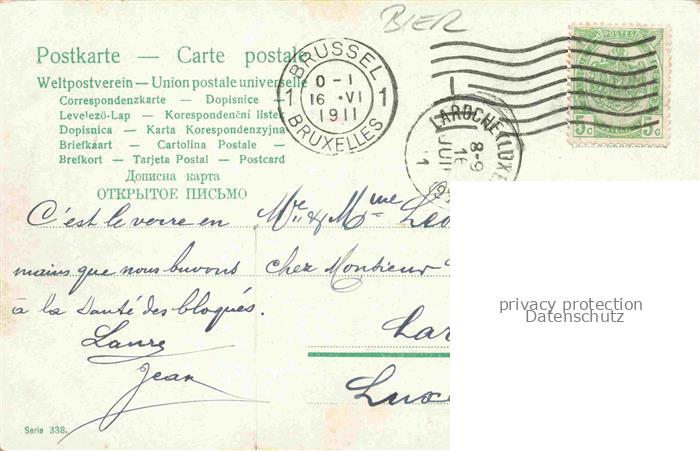 BIER
Postkarte — Carte postale
Weltpostverein — Union postale universelle
Correspondenzkarte — Dopisnice
Levelezö-Lap — Korespondenční listek
Dopisnica — Karta Korespondenzyjna
Briefkaart — Cartolina Postale —
Brefkort — Tarjeta Postal — Postcard
Дописна карта
ОТКРЫТОЕ ПИСЬМО
BRUSSEL
0-1
1 16 VI 1
1911
BRUXELLES
LAROCHE
8-9
16
JUI
POSTES
5c 5c
C'est le verre en
mains que nous buvons
à la Santé des bloqués.
Laure
Jean
Mr & Mme
chez Monsieur
Lar
Lux
privacy protection
Datenschutz
Serie 338.